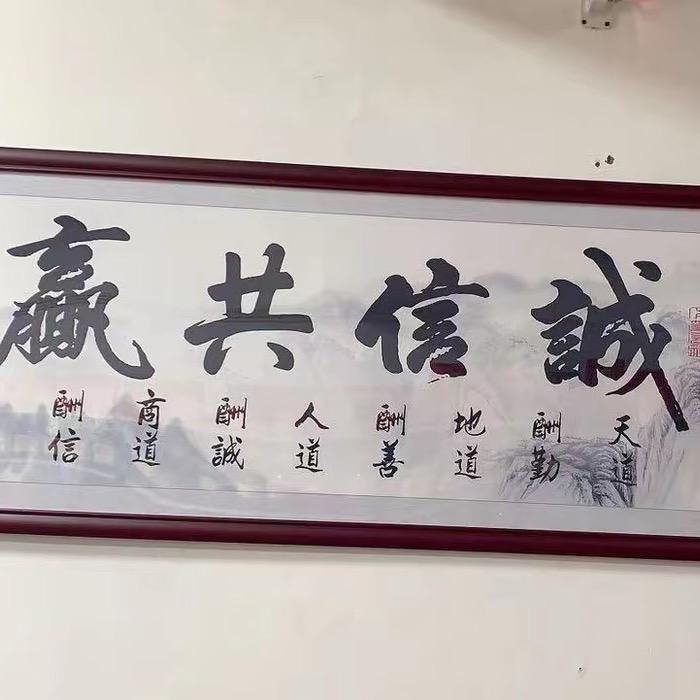 誠信共贏
天道
酬勤
地道
酬善
人道
酬誠
商道
酬信